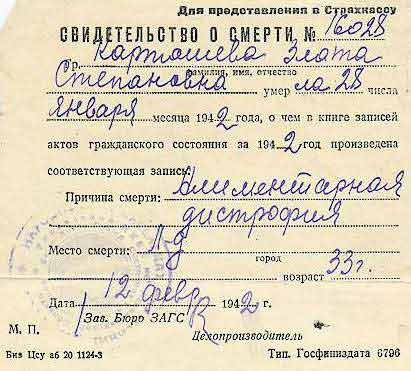 Для представления в Страхкассу
СВИДЕТЕЛЬСТВО О СМЕРТИ № 16028
Гр. Карташева Злата
фамилия, имя, отчество
Степановна умерла 28 числа
января месяца 1942 года, о чем в книге записей
актов гражданского состояния за 1942 год произведена
соответствующая запись:
Причина смерти: Алиментарная
дистрофия
Место смерти: Л-д
город
возраст 33 г.
Дата 12 февр 1942 г.
Зав. Бюро ЗАГС
М. П. Делопроизводитель
Биз Цсу аб 20 1124-3 Тип. Госфиниздата 6796